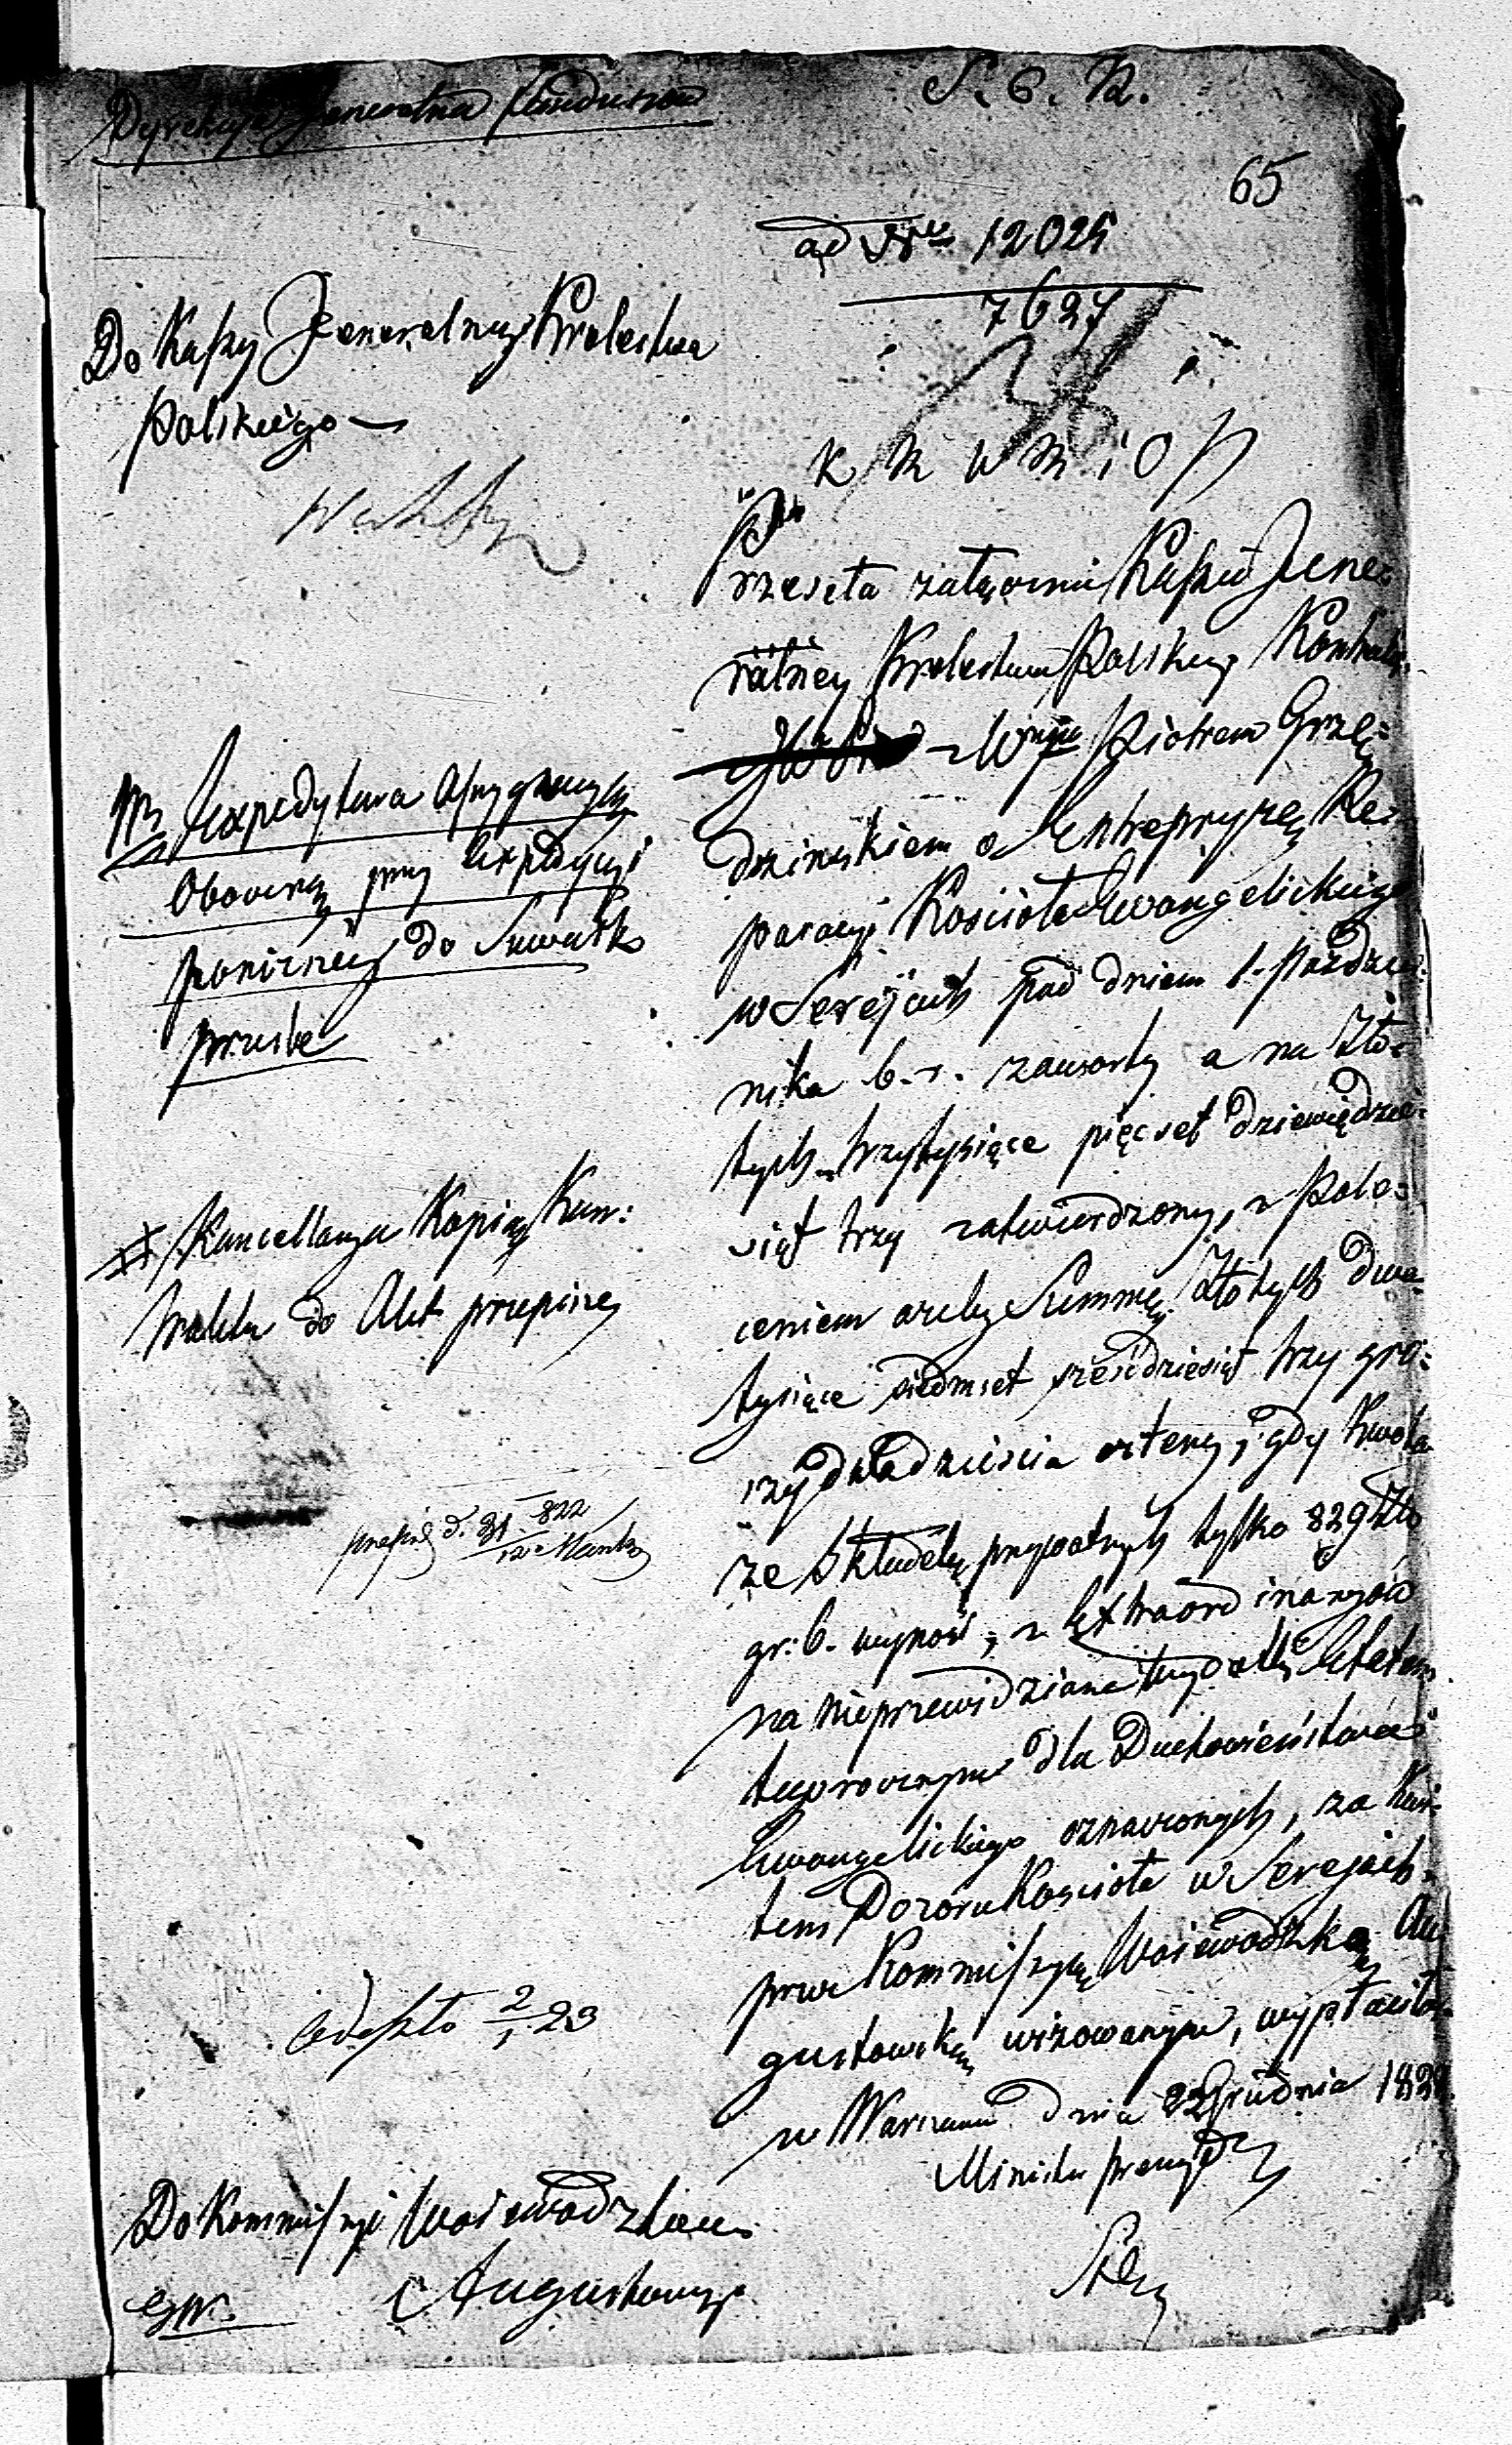 Dyrekcya Jeneralna Funduszów
S. 6. R.
65
ad Nrm 12025
7627
Do Kassy Jeneralney Krolestwa
Polskiego —
K R W R i O P
Przeseła załączenu Kassie Jene-
ralney Krolestwa Polskiego Kontrakt
z Wnym Piotrem Grzę-
dzinskiem o Entrepryzę Re-
paracyi Kościoła Ewangelickiego
w Serejach pod dniem 1. Paździer-
nika b. r. zawarty a na Zło-
tych trzy tysiące pięcset dziewiędzie-
siąt trzy zatwierdzony, z Pole-
ceniem ażeby Summę Złotych dwa
tysiące siedmset sześćdziesiąt trzy gro-
szy dwadzieścia cztery, gdy kwota
ze składek prywatnych tylko 829 Zło
gr: 6. wynosi, z Extraordinaryów
na nieprzewidziane wydatki Etatem
tegorocznym dla Duchowieństwa
Ewangelickiego oznaczonych, za Kwi-
tem Dozoru Kościoła w Serejach
przez Kommissyą Woiewodzką Au-
gustowską wizowanym, wypłaciła.
w Warszawie dnia 22 Grudnia 1822.
Minister Prezyd
Expedytura Assygnacyą
Oboczną przy Expedycyi
ponizney do Suwałk
prześle
Kancellarya Kopią Kon-
traktu do Akt przepisze
przepis d. 31/12 822
Odeszło 2/1 23
Do Kommissyi Woiewodzkiey
Augustowskiey